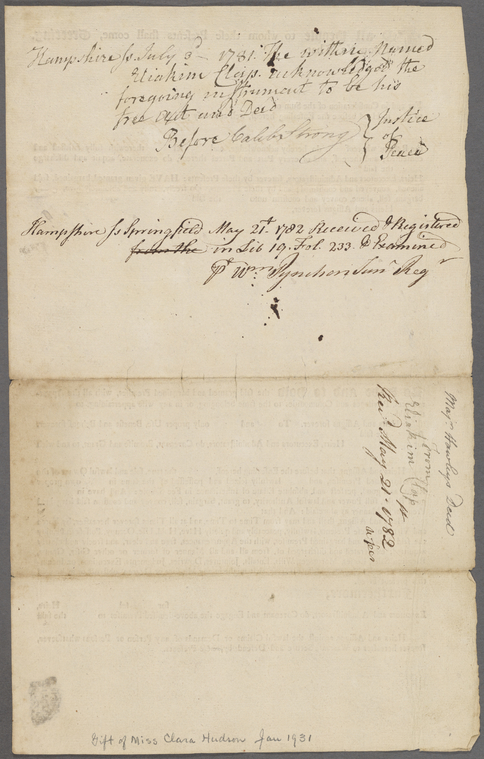 Hampshire ss July 3d - 1781. The within Named
Eliakim Clap acknowledged the
foregoing instrument to be his
free Act and Deed
Before Caleb Strong } Justice
of
Peace
Hampshire ss Springfield May 21st. 1782 Received & Registered
from the in Lib 19. Fol. 233. & Examined
pr Wm. Pynchon Junr Regr
Majr. Hawleys Deed
from
Eliakim Clap
Recd May 21st 1782
Gift of Miss Clara Hudson Jan 1931